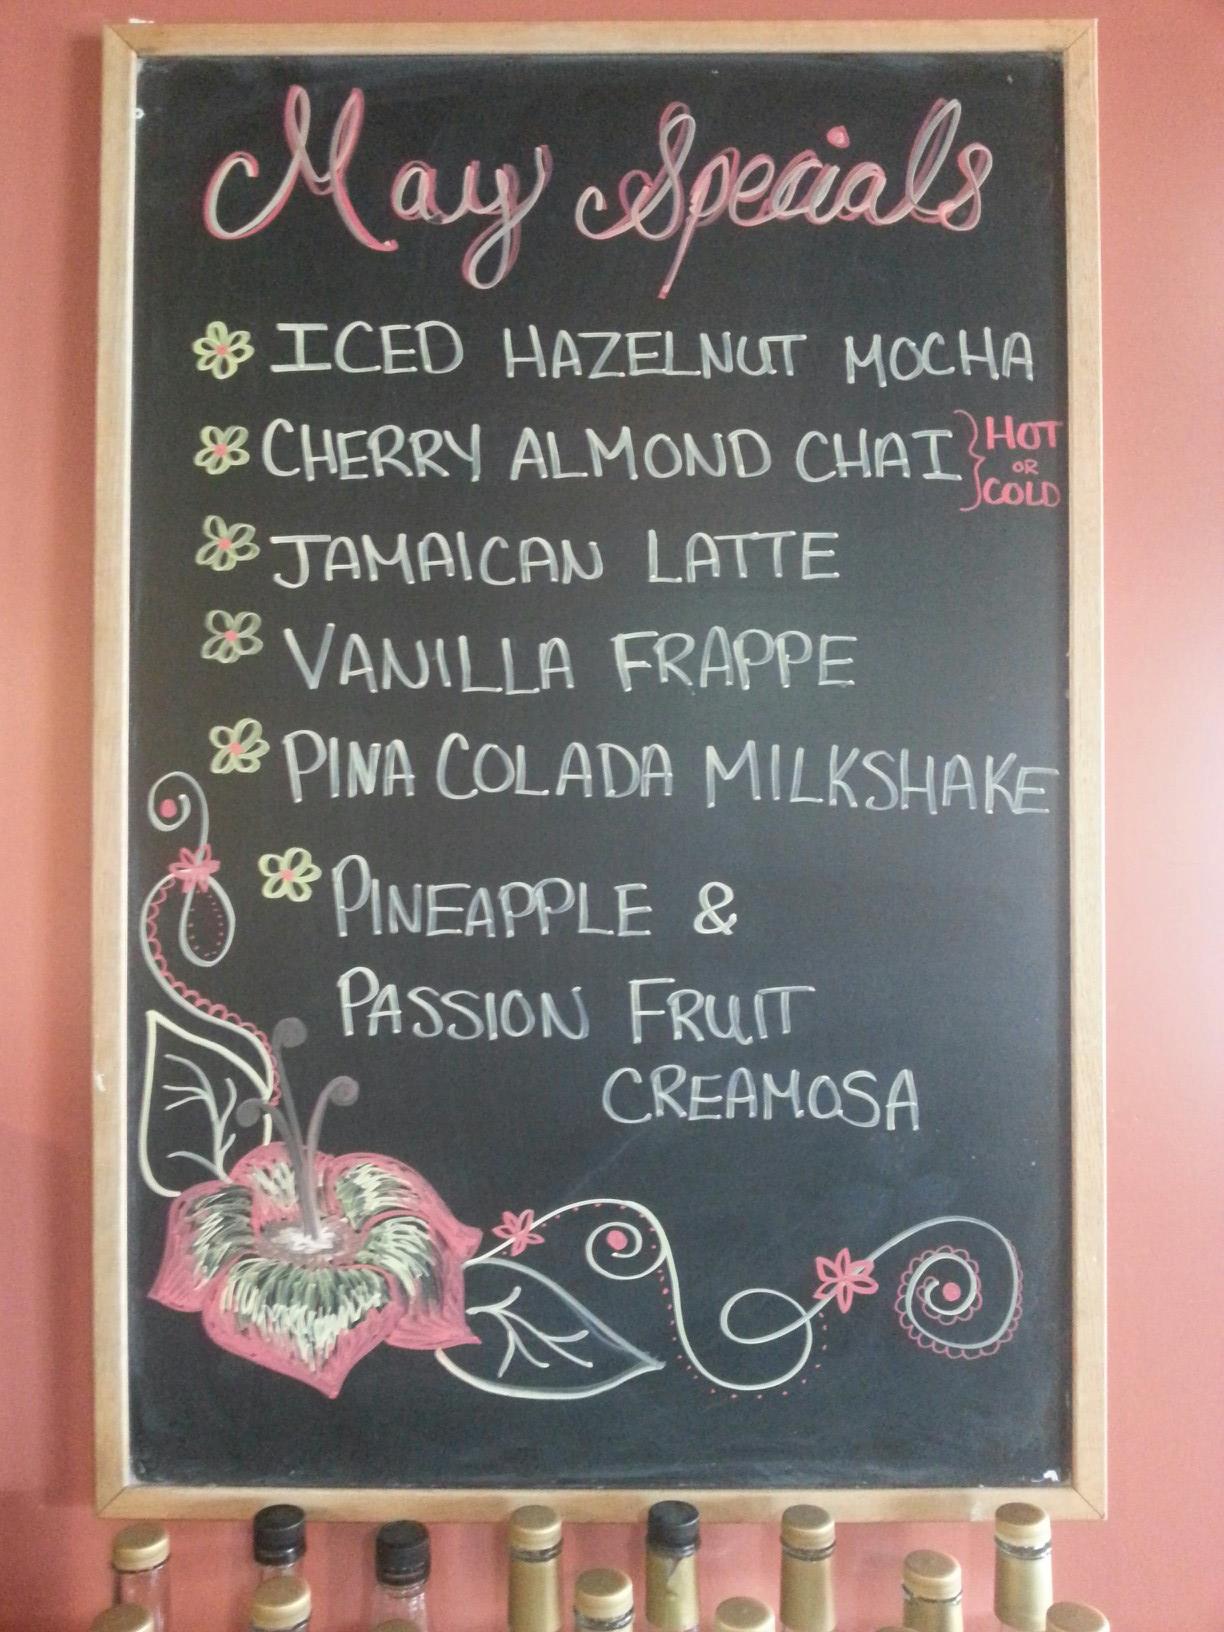 May Specials
ICED HAZELNUT MOCHA
CHERRY ALMOND CHAI } HOT OR COLD
JAMAICAN LATTE
VANILLA FRAPPE
PINA COLADA MILKSHAKE
PINEAPPLE &
PASSION FRUIT
CREAMOSA